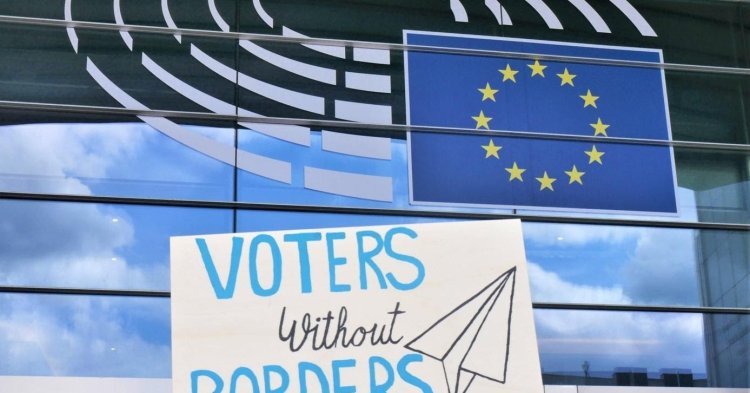 VOTERS
Without
BORDERS